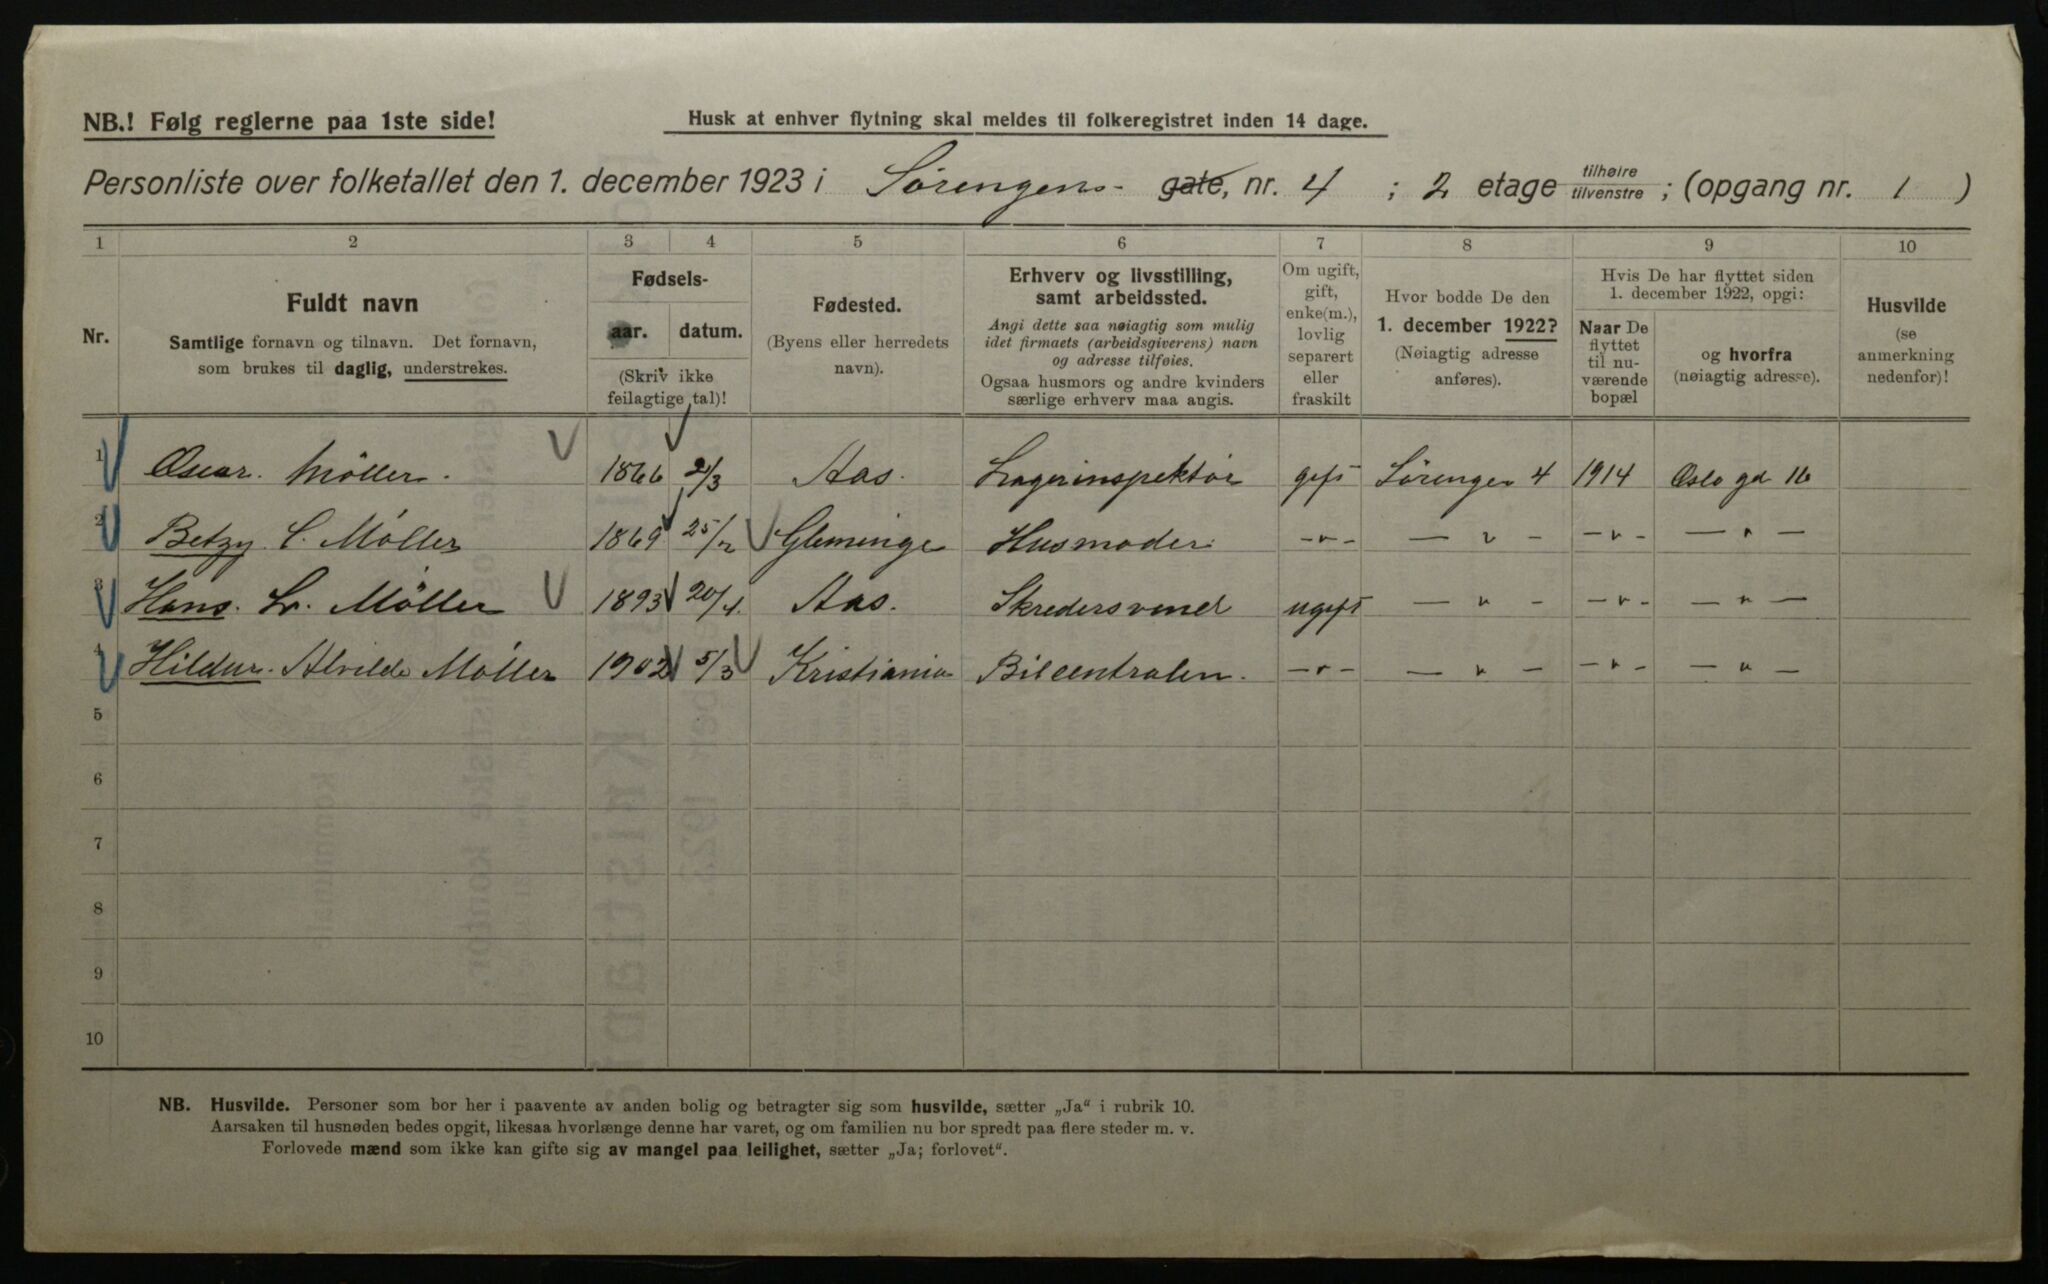 NB.! Følg reglerne paa 1ste side!
Husk at enhver flytning skal meldes til folkeregistret inden 14 dage.
Personliste over folketallet den 1. december 1923 i Sørengen gate, nr. 4 ; 2 etage tilhøire tilvenstre ; (opgang nr. 1 )
1 2 3 4 5 6 7 8 9 10
Nr.
Fuldt navn
Samtlige fornavn og tilnavn. Det fornavn,
som brukes til daglig, understrekes.
Fødsels-
aar. datum.
(Skriv ikke
feilagtige tal)!
Fødested.
(Byens eller herredets
navn).
Erhverv og livsstilling,
samt arbeidssted.
Angi dette saa nøiagtig som mulig
idet firmaets (arbeidsgiverens) navn
og adresse tilføies.
Ogsaa husmors og andre kvinders
særlige erhverv maa angis.
Om ugift,
gift,
enke(m.),
lovlig
separert
eller
fraskilt
Hvor bodde De den
1. december 1922?
(Nøiagtig adresse
anføres).
Hvis De har flyttet siden
1. december 1922, opgi:
Naar De
flyttet
til nu-
værende
bopæl
og hvorfra
(nøiagtig adresse).
Husvilde
(se
anmerkning
nedenfor)!
1 Oscar Møller. 1866 2/3 Aas. Lagerinspektør gift Sørengen 4 1914 Oslo gd 16
2 Betzy C. Møller 1869 25/2 Gleminge Husmoder -"- — " - -"- — " —
3 Hans. Lr. Møller 1893 20/4. Aas. Skredersvend ugift — " - -"- — " —
4 Hildur. Alvilde Møller 1902 5/3 Kristiania Bilcentralen. -"- — " - -"- — " —
5
6
7
8
9
10
NB. Husvilde. Personer som bor her i paavente av anden bolig og betragter sig som husvilde, sætter „Ja“ i rubrik 10.
Aarsaken til husnøden bedes opgit, likesaa hvorlænge denne har varet, og om familien nu bor spredt paa flere steder m. v.
Forlovede mænd som ikke kan gifte sig av mangel paa leilighet, sætter „Ja; forlovet“.